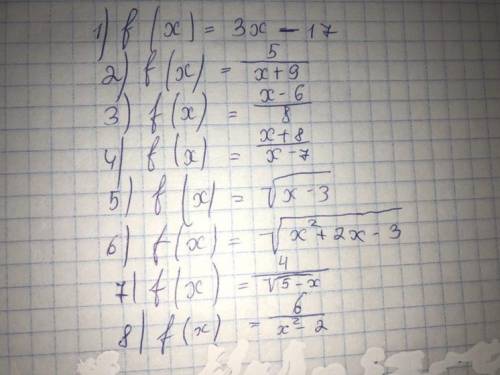 1) f(x) = 3x - 17
2) f(x) = 5/(x+9)
3) f(x) = (x-6)/8
4) f(x) = (x+8)/(x-7)
5) f(x) = √(x-3)
6) f(x) = √(x²+2x-3)
7) f(x) = 4/√(5-x)
8) f(x) = 6/(x²-2)